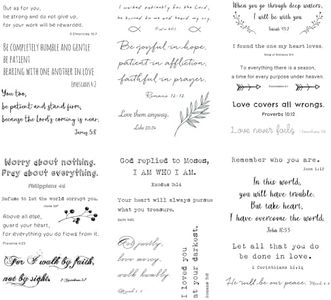 But as for you,
be strong and do not give up,
for your work will be rewarded.
2 Chronicles 15:7
BE COMPLETELY HUMBLE AND GENTLE
BE PATIENT
BEARING WITH ONE ANOTHER IN LOVE
EPHESIANS 4:2
You too,
be patient and stand firm,
because the Lord's coming is near.
James 5:8
I waited patiently for the Lord,
he turned to me and heard my cry.
Be joyful in hope,
patient in affliction,
faithful in prayer.
Romans 12:12
Love them anyway.
Luke 23:34
When you go through deep waters,
I will be with you
Isaiah 43:2
I found the one my heart loves.
To everything there is a season,
a time for every purpose under heaven.
Love covers all wrongs.
Proverbs 10:12
Love never fails
Worry about nothing.
Pray about everything.
Philippians 4:6
Refuse to let the world corrupt you.
Above all else,
guard your heart,
for everything you do flows from it.
Proverbs 4:23
For I walk by faith,
not by sight.
God replied to Moses,
I AM WHO I AM.
Exodus 3:14
Your heart will always pursue
what you treasure.
Act justly,
love mercy,
walk humbly
I loved you
at your darkest.
Remember who you are.
In this world,
you will have trouble.
But take heart,
I have overcome the world.
John 16:33
Let all that you do
be done in love.
1 Corinthians 16:14
He will be our peace.